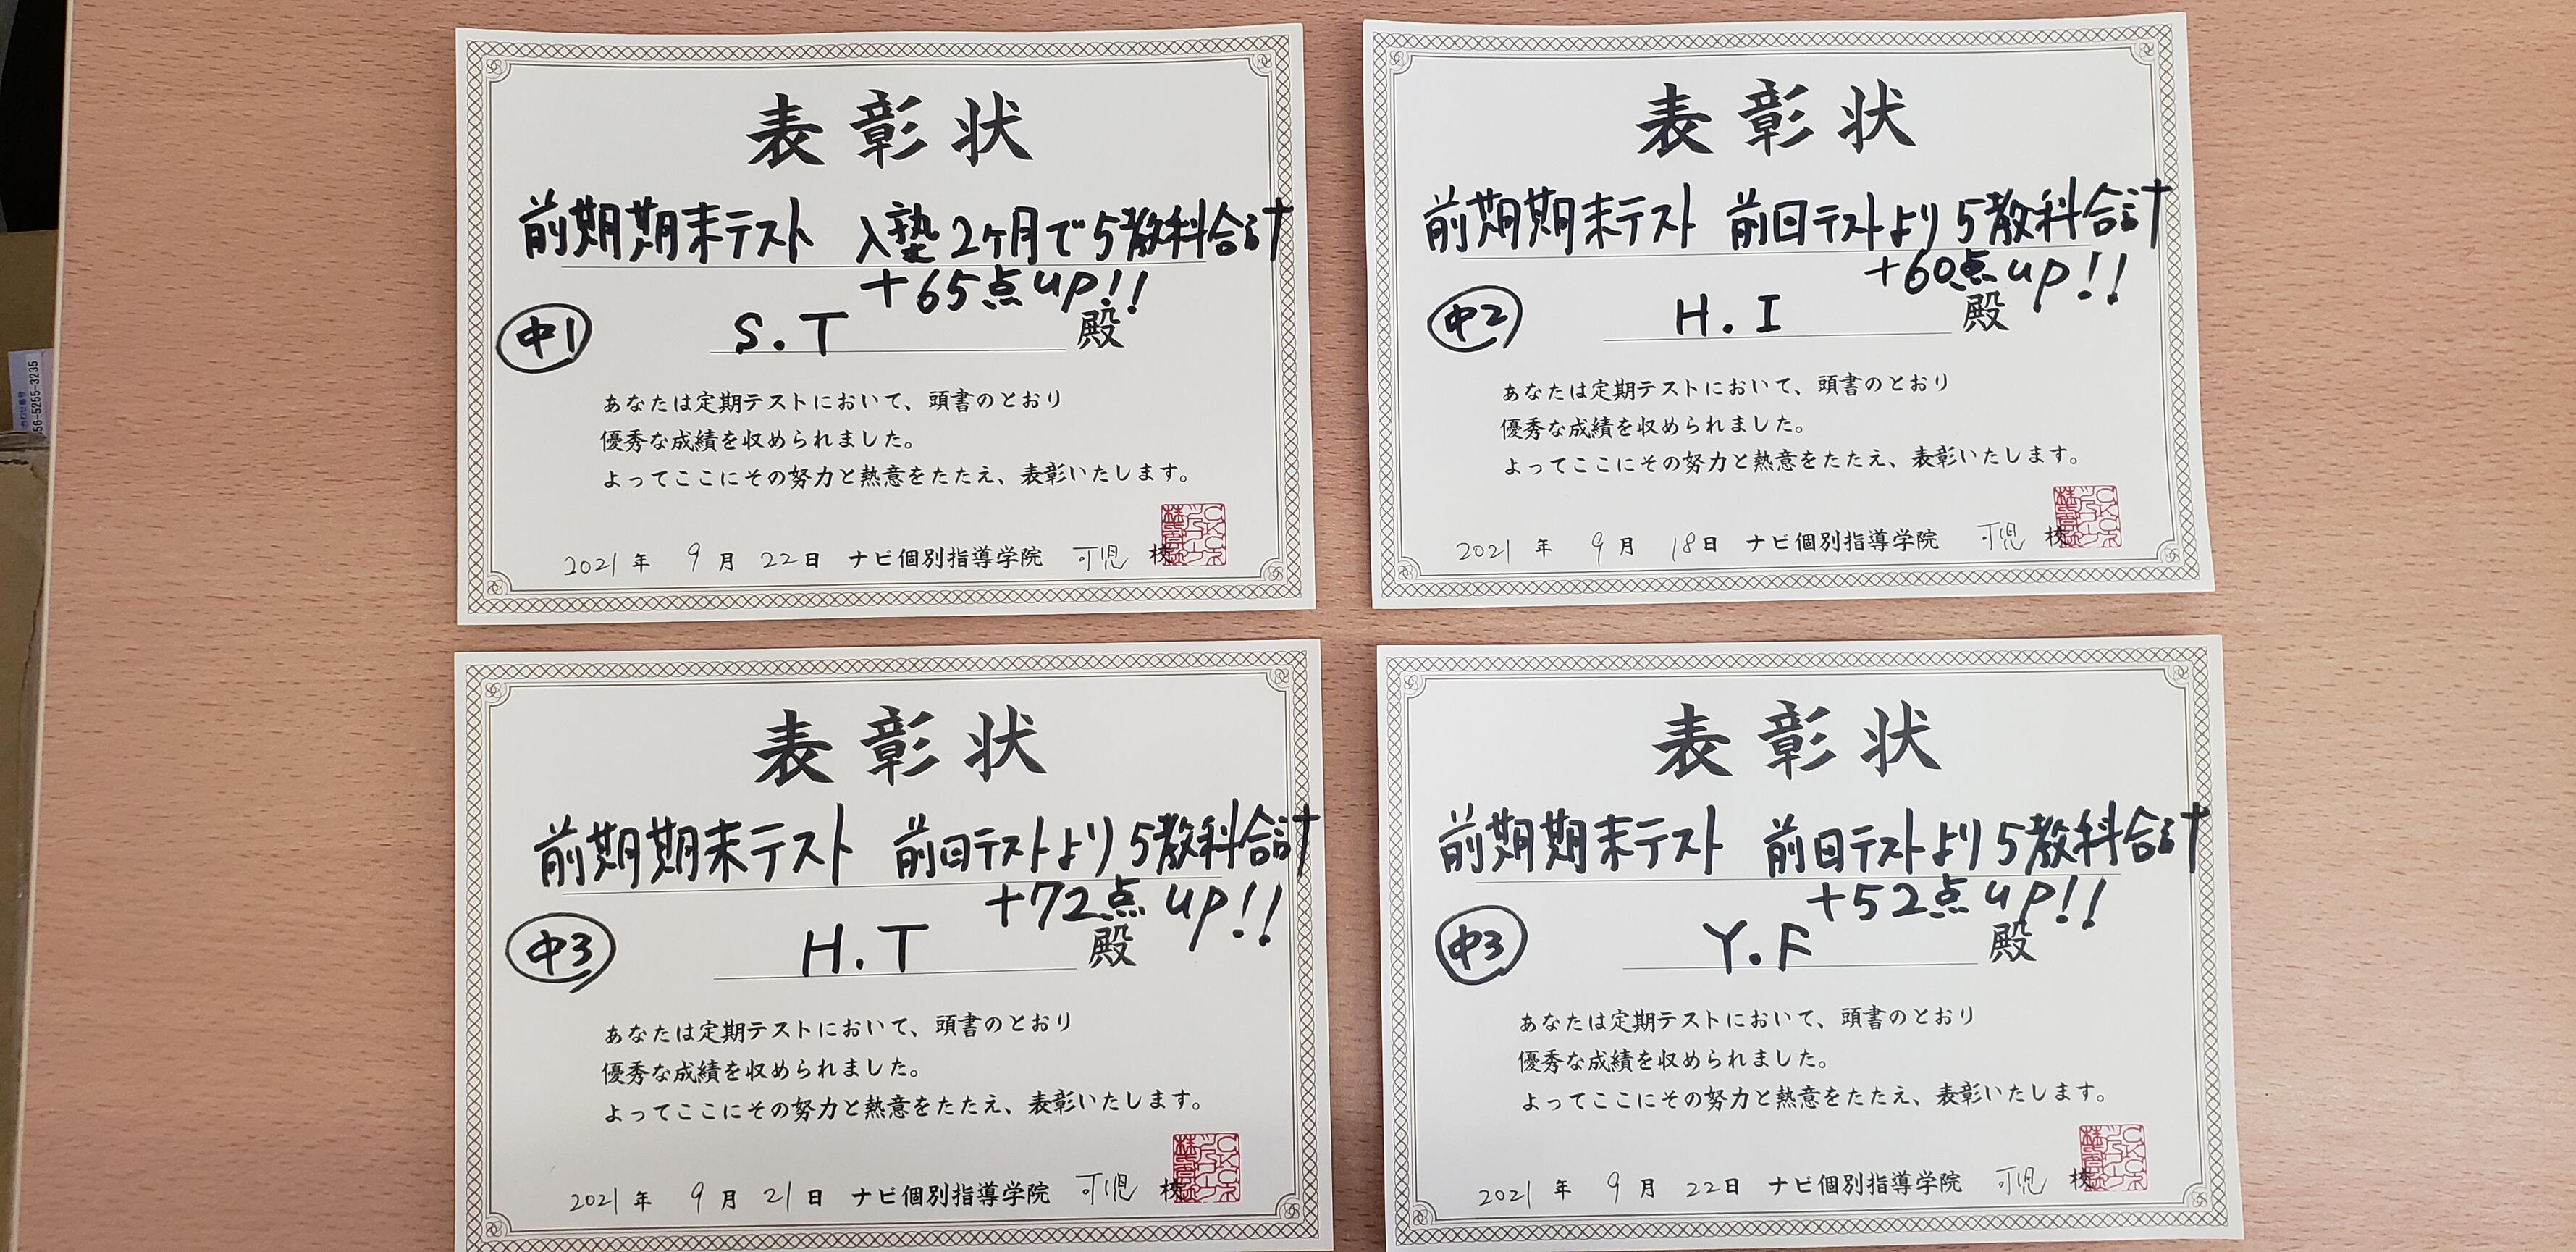 表彰状
前期期末テスト 入塾2ヶ月で5教科合計
+65点up!!
中1 S.T 殿
あなたは定期テストにおいて、頭書のとおり
優秀な成績を収められました。
よってここにその努力と熱意をたたえ、表彰いたします。
2021年 9月 22日 ナビ個別指導学院 可児 校
表彰状
前期期末テスト 前回テストより5教科合計
+60点up!!
中2 H.I 殿
あなたは定期テストにおいて、頭書のとおり
優秀な成績を収められました。
よってここにその努力と熱意をたたえ、表彰いたします。
2021年 9月 18日 ナビ個別指導学院 可児 校
表彰状
前期期末テスト 前回テストより5教科合計
+72点up!!
中3 H.T 殿
あなたは定期テストにおいて、頭書のとおり
優秀な成績を収められました。
よってここにその努力と熱意をたたえ、表彰いたします。
2021年 9月 21日 ナビ個別指導学院 可児 校
表彰状
前期期末テスト 前回テストより5教科合計
+52点up!!
中3 Y.F 殿
あなたは定期テストにおいて、頭書のとおり
優秀な成績を収められました。
よってここにその努力と熱意をたたえ、表彰いたします。
2021年 9月 22日 ナビ個別指導学院 可児 校
56-5255-3235